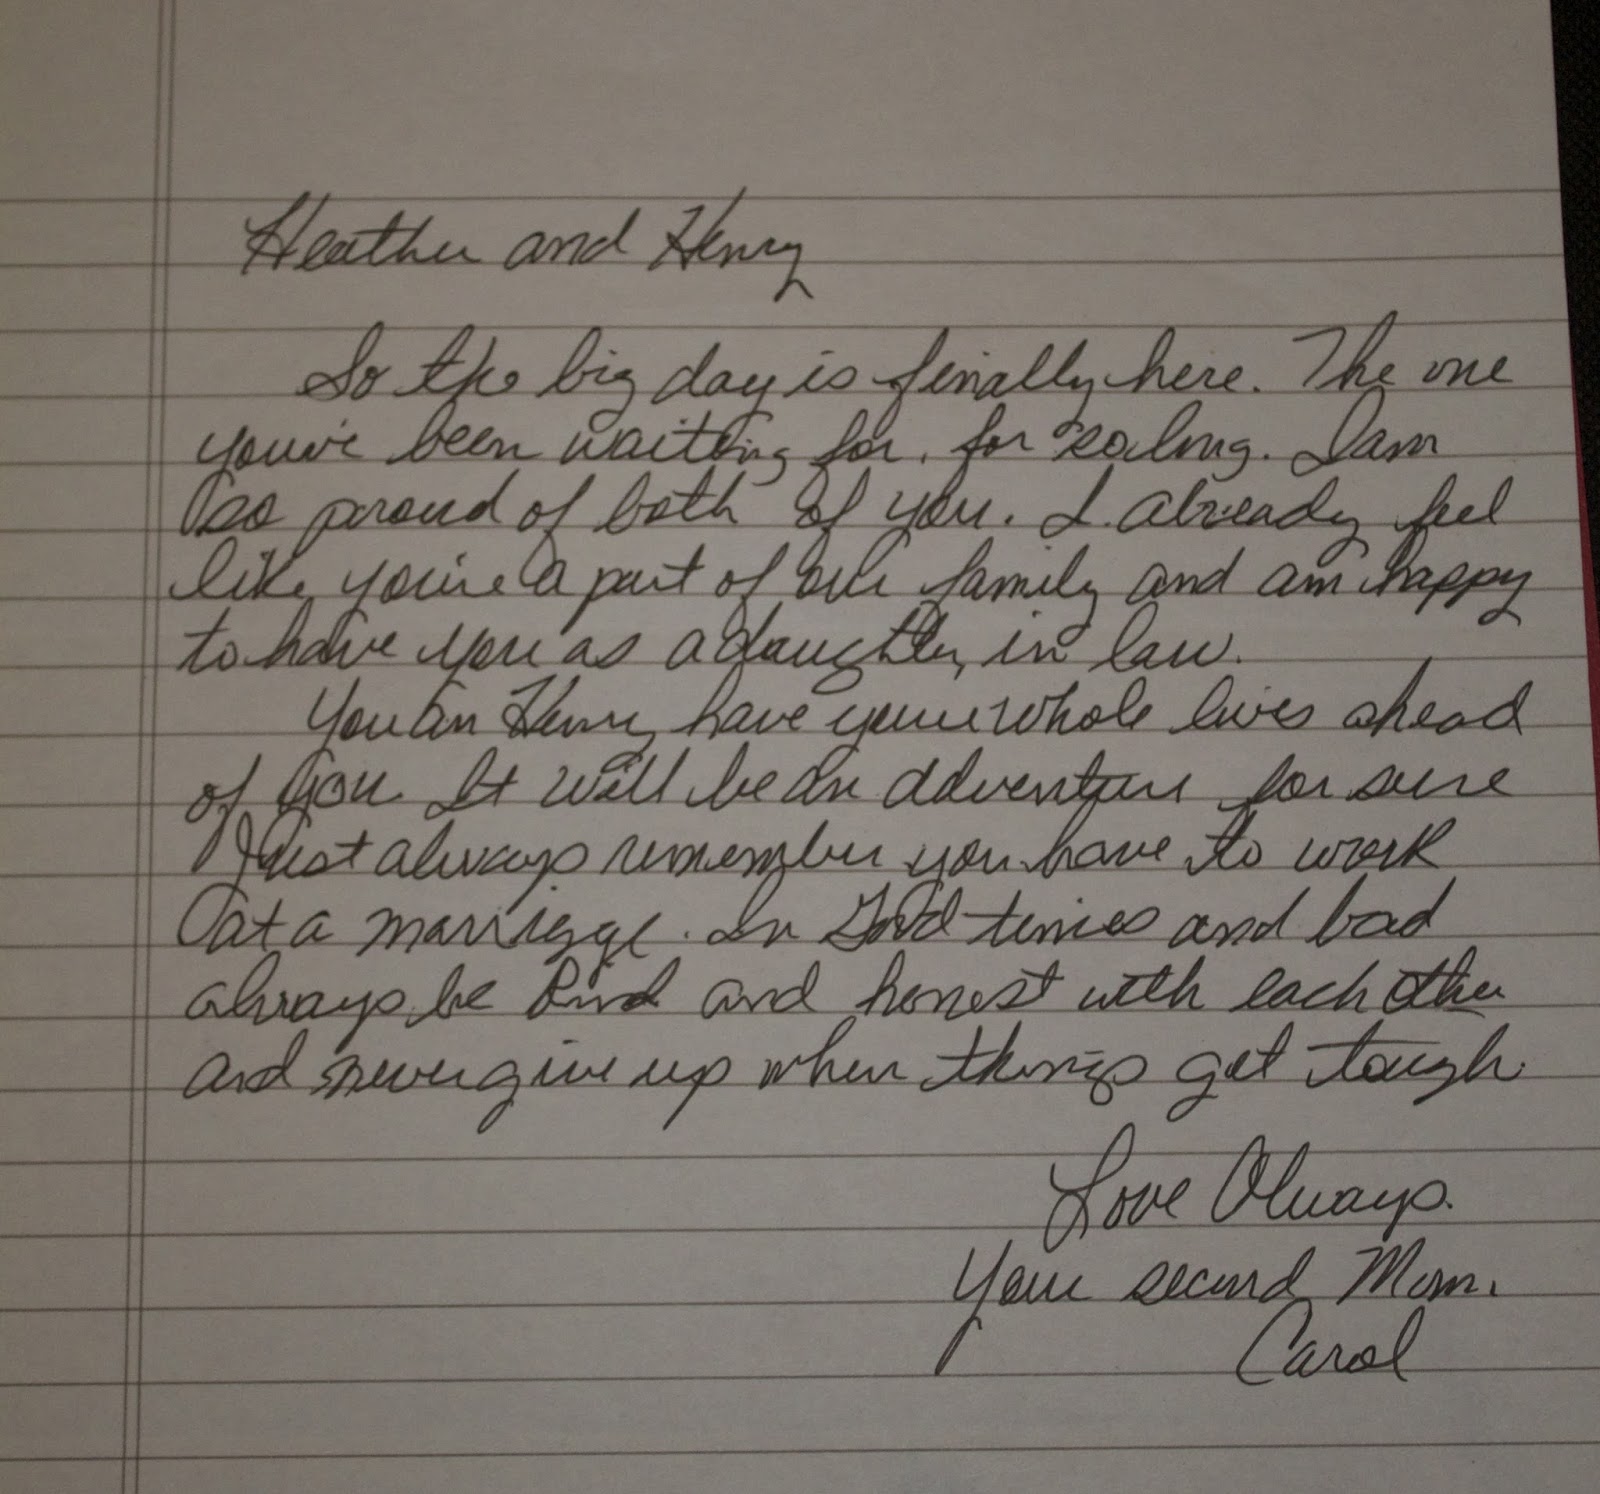 Heather and Henry
So the big day is finally here. The one
you've been waiting for, for so long. I am
so proud of both of you. I already feel
like you're a part of our family and am happy
to have you as a daughter in law.
You an Henry have your whole lives ahead
of you. It will be an adventure for sure
Just always remember you have to work
at a marriage. In Good times and bad
always be kind and honest with each other
and never give up when things get tough.
Love Always.
Your second Mom.
Carol